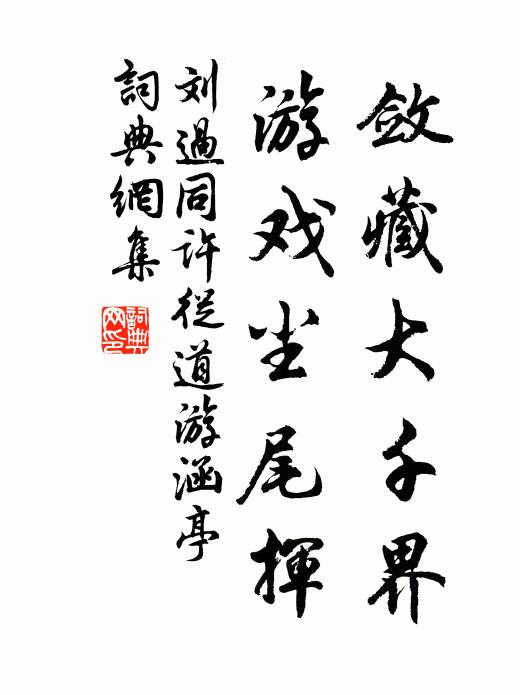 敛藏大千界
游戏尘尾挥
刘過同许從道游涵亭
詞典網集
詞典网印